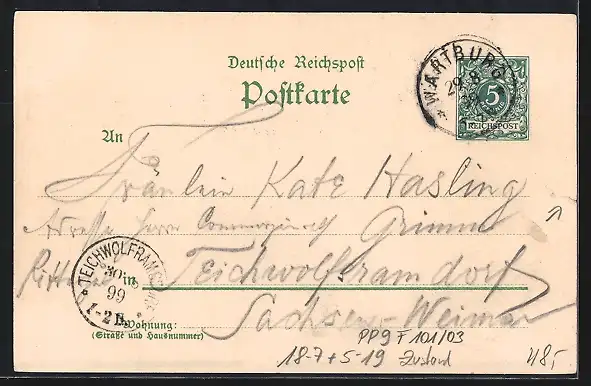 Deutsche Reichspost
Postkarte
WARTBURG
29 8
99
5
REICHSPOST
An
Fräulein Kate Hasling
Adresse Herrn Grimm
in Teichwolframsdorf
TEICHWOLFRAMSDORF
30 8
99
1-2N.
Sachsen-Weimar
Wohnung:
(Straße und Hausnummer)
PP9 F 101/03
18-7+5-19 Zustand
48,-